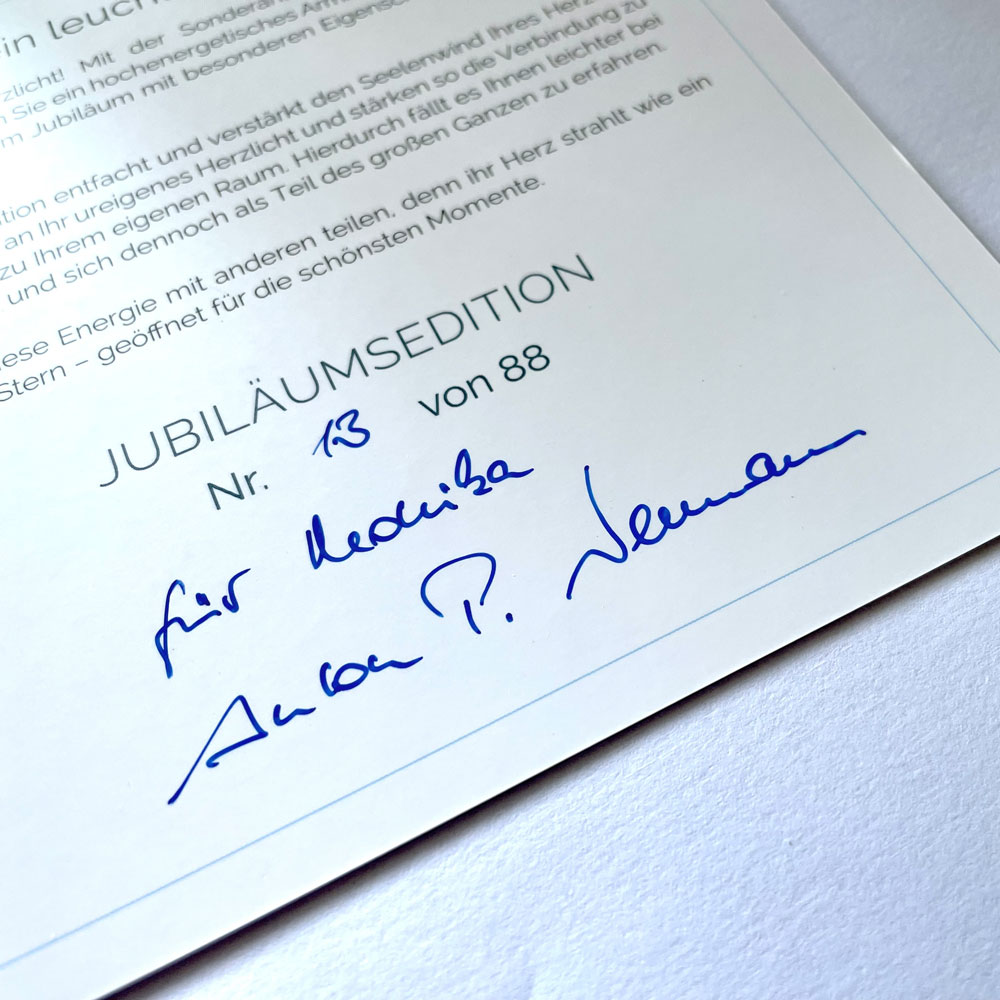 ein leuch
zlicht! Mit der Sonderan
Sie ein hochenergetisches Arm
m Jubiläum mit besonderen Eigensc
tion entfacht und verstärkt den Seelenwind Ihres Herz
an Ihr ureigenes Herzlicht und stärken so die Verbindung zu
zu Ihrem eigenen Raum. Hierdurch fällt es Ihnen leichter bei
und sich dennoch als Teil des großen Ganzen zu erfahren.
iese Energie mit anderen teilen, denn ihr Herz strahlt wie ein
Stern – geöffnet für die schönsten Momente.
JUBILÄUMSEDITION
Nr. 13 von 88
für Monika
Anton P. Neumann